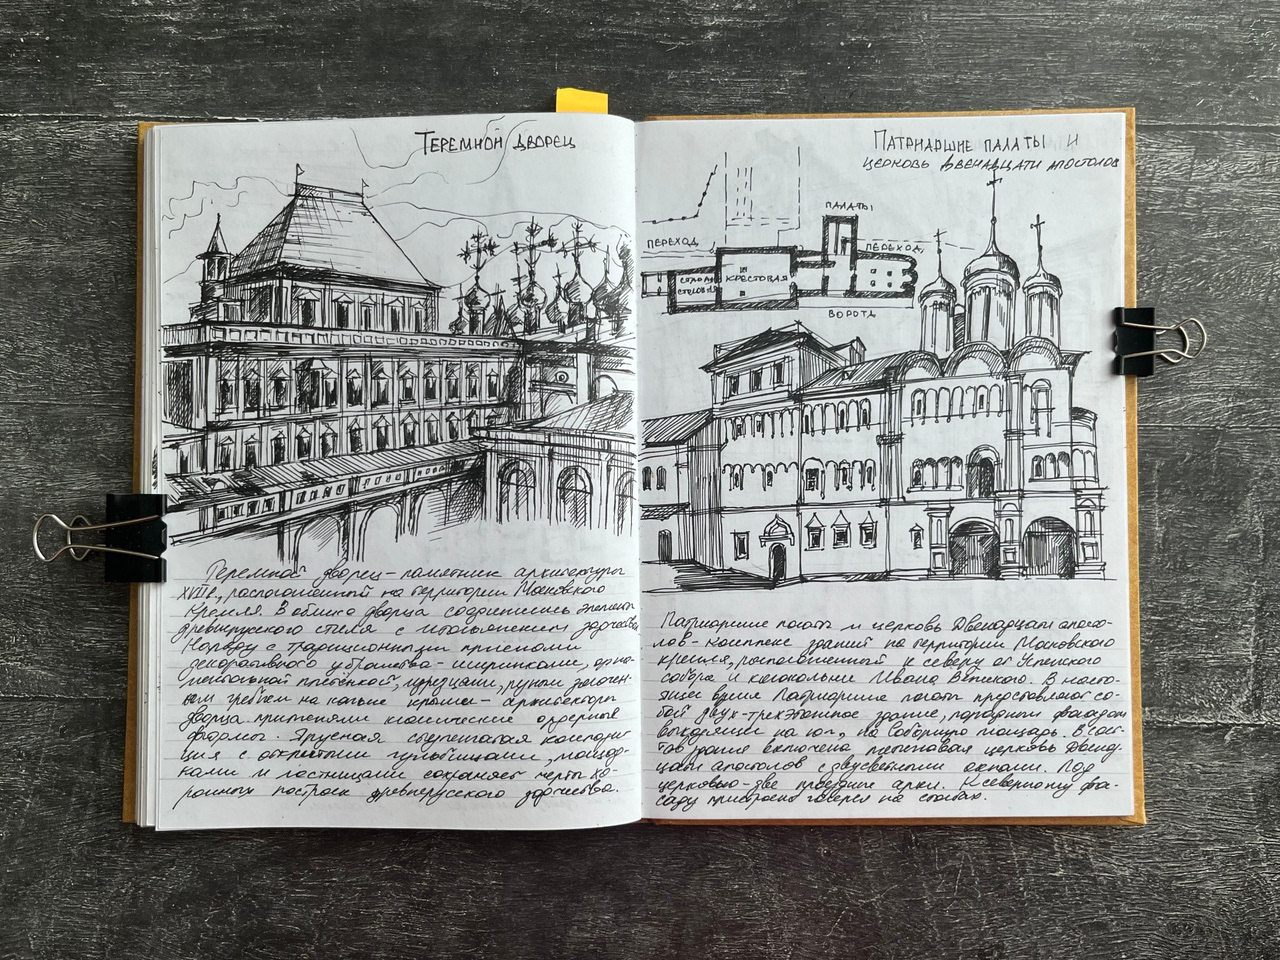 Теремной дворец
Теремной дворец - памятник архитектуры
XVIIв, расположенный на территории Московского
Кремля. В облике дворца соединились элементы
древнерусского стиля с итальянским зодчеством
Наряду с традиционными приемами
декоративного убранства - ширинками, орна-
ментальной плетёнкой, изразцами, резным золочен-
ым гребнем на коньке крыши - архитекторы
дворца применяли классические ордерные
формы. Ярусная ступенчатая компози-
ция с открытыми гульбищами, площад-
ками и лестницами сохраняет черты хо-
ромных построек древнерусского зодчества.
Патриаршие палаты и
церковь двенадцати апостолов
ПАЛАТЫ
ПЕРЕХОД
ПЕРЕХОД
КРЕСТОВАЯ
ВОРОТА
Патриаршие палаты и церковь Двенадцати апосто-
лов - комплекс зданий на территории Московского
кремля, расположенный к северу от Успенского
собора и колокольни Ивана Великого. В насто-
ящее время Патриаршие палаты представляют со-
бой двух-трехэтажное здание, парадным фасадом
выходящим на юг, на Соборную площадь. В сос-
тав здания включена пятиглавая церковь Двенад-
цати апостолов с двусветными окнами. Под
церковью - две проездные арки. К северному фа-
саду пристроена галерея на столбах.